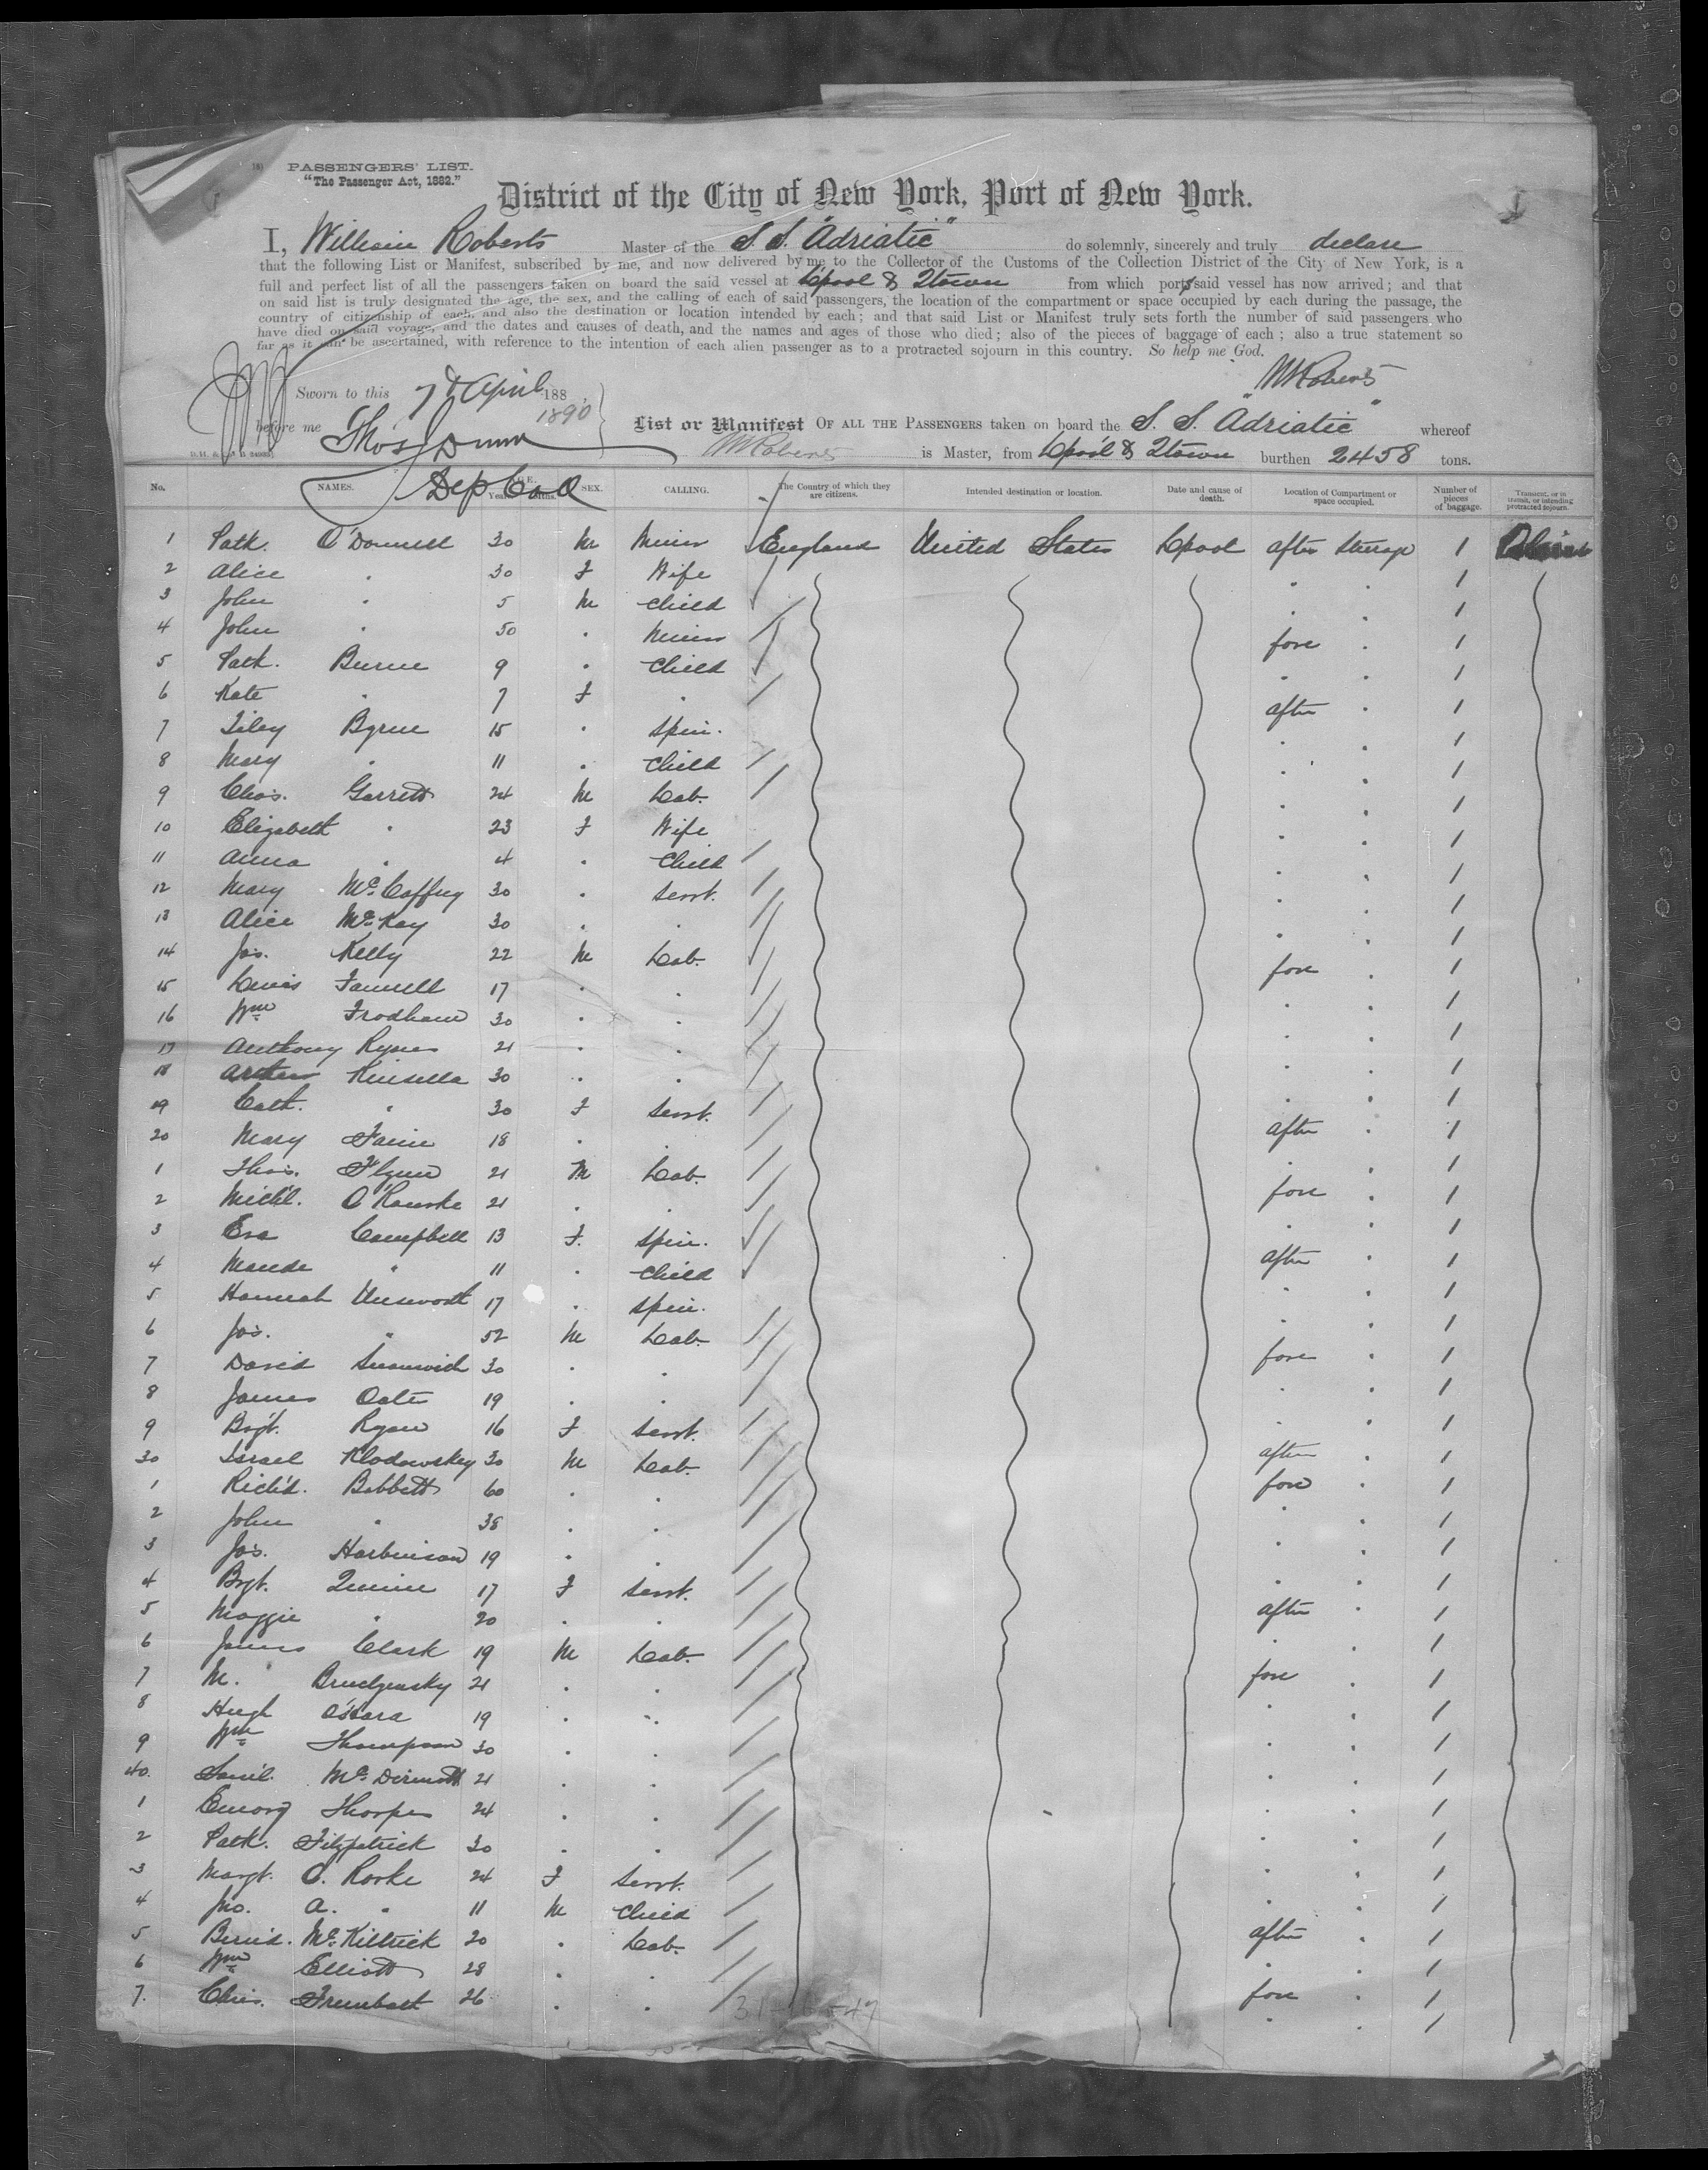 PASSENGERS' LIST.
"The Passenger Act, 1882."
District of the City of New York, Port of New York.
I, William Roberts Master of the S. S. "Adriatic" do solemnly, sincerely and truly declare
that the following List or Manifest, subscribed by me, and now delivered by me to the Collector of the Customs of the Collection District of the City of New York, is a
full and perfect list of all the passengers taken on board the said vessel at L'pool & Qtown from which ports said vessel has now arrived; and that
on said list is truly designated the age, the sex, and the calling of each of said passengers, the location of the compartment or space occupied by each during the passage, the
country of citizenship of each, and also the destination or location intended by each; and that said List or Manifest truly sets forth the number of said passengers who
have died on said voyage, and the dates and causes of death, and the names and ages of those who died; also of the pieces of baggage of each; also a true statement so
far as it can be ascertained, with reference to the intention of each alien passenger as to a protracted sojourn in this country. So help me God.
Sworn to this 7th April 188 1890
WRoberts
before me Thos Dunn
Dep Col
List or Manifest OF ALL THE PASSENGERS taken on board the S. S. "Adriatic" whereof
WRoberts is Master, from L'pool & Qtown burthen 2458 tons.
No. NAMES. AGE. Years. Mths. SEX. CALLING. The Country of which they are citizens. Intended destination or location. Date and cause of death. Location of Compartment or space occupied. Number of pieces of baggage. Transient, or in transit, or intending protracted sojourn.
1 Patk. O'Donnell 30 M Miner England United States L'pool after steerage 1
2 Alice " 30 F Wife " " 1
3 John " 5 M Child " " 1
4 John " 50 " Miner fore " 1
5 Patk. Burne 9 " Child " " 1
6 Kate " 7 F " after " 1
7 Liley Byrne 15 " Spin. " " 1
8 Mary " 11 " Child " " 1
9 Chas. Garrett 24 M Lab. " " 1
10 Elizabeth " 23 F Wife " " 1
11 Anna " 4 " Child " " 1
12 Mary McCaffrey 30 " Servt. " " 1
13 Alice McKay 30 " " " " 1
14 Jas. Kelly 22 M Lab. fore " 1
15 Lewis Farrell 17 " " " " 1
16 Wm Frodham 30 " " " " 1
17 Anthony Rynes 21 " " " " 1
18 Arthur Kinsella 30 " " " " 1
19 Cath. " 30 F Servt. after " 1
20 Mary 18 " " " " 1
1 Thos. Flynn 21 M Lab. fore " 1
2 Michl. O'Rourke 21 " " " " 1
3 Eva Campbell 13 F. Spin. after " 1
4 Maude " 11 " Child " " 1
5 Hannah Unsworth 17 " Spin. " " 1
6 Jas. " 52 M Lab. fore " 1
7 David 30 " " " " 1
8 James Oates 19 " " " " 1
9 Bgt. Ryan 16 F Servt. after " 1
30 Israel Klodowskey 30 M Lab. fore " 1
1 Richd. Bobbett 60 " " " " 1
2 John " 38 " " " " 1
3 Jas. Harbinson 19 " " " " 1
4 Bgt. Quinn 17 F Servt. after " 1
5 Maggie " 20 " " " " 1
6 James Clark 19 M Lab. fore " 1
7 M. 21 " " " " 1
8 Hugh O'Hara 19 " " " " 1
9 Wm Thompson 30 " " " " 1
40. Saml. McDermott 21 " " " " 1
1 Emory Thorpe 24 " " " " 1
2 Patk. Fitzpatrick 30 " " " " 1
3 Margt. O. Rorke 24 F Servt. " " 1
4 Jno. A. " 11 M Child after " 1
5 Bernd. McKittrick 20 " Lab. " " 1
6 Wm Elliott 28 " " fore " 1
7. Chris. 26 " " " " 1